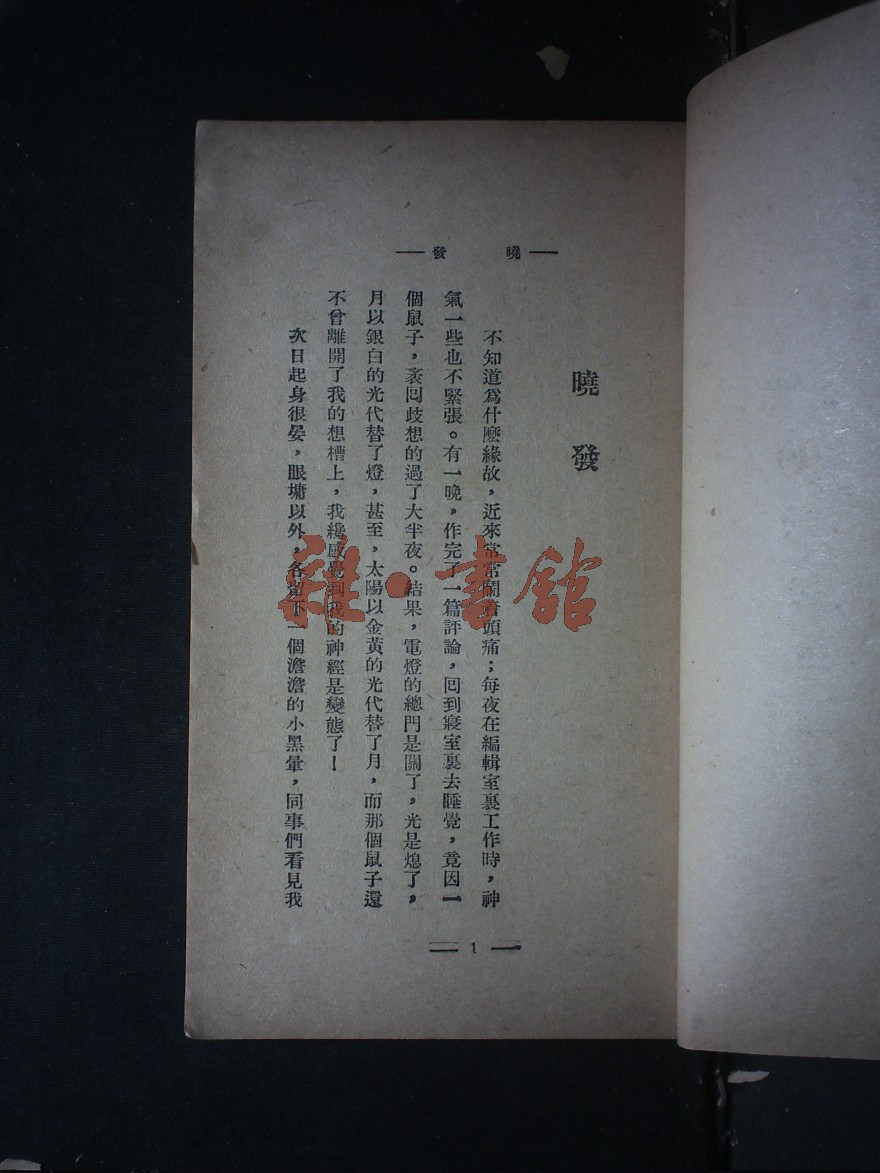 曉 發
曉 發
不知道爲什麽緣故，近來常常鬧着頭痛；每夜在編輯室裏工作時，神
氣一些也不緊張。有一晚，作完了一篇評論，囘到寢室裏去睡覺，竟因一
個鼠子，袤囘歧想的過了大半夜。結果，電燈的總門是關了，光是熄了，
月以銀白的光代替了燈，甚至，太陽以金黃的光代替了月，而那個鼠子還
不曾離開了我的想槽上，我纔感覺到我的神經是變態了！
次日起身很晏，眼墉以外，各留下一個澹澹的小黑暈，同事們看見我
1
雜·書館